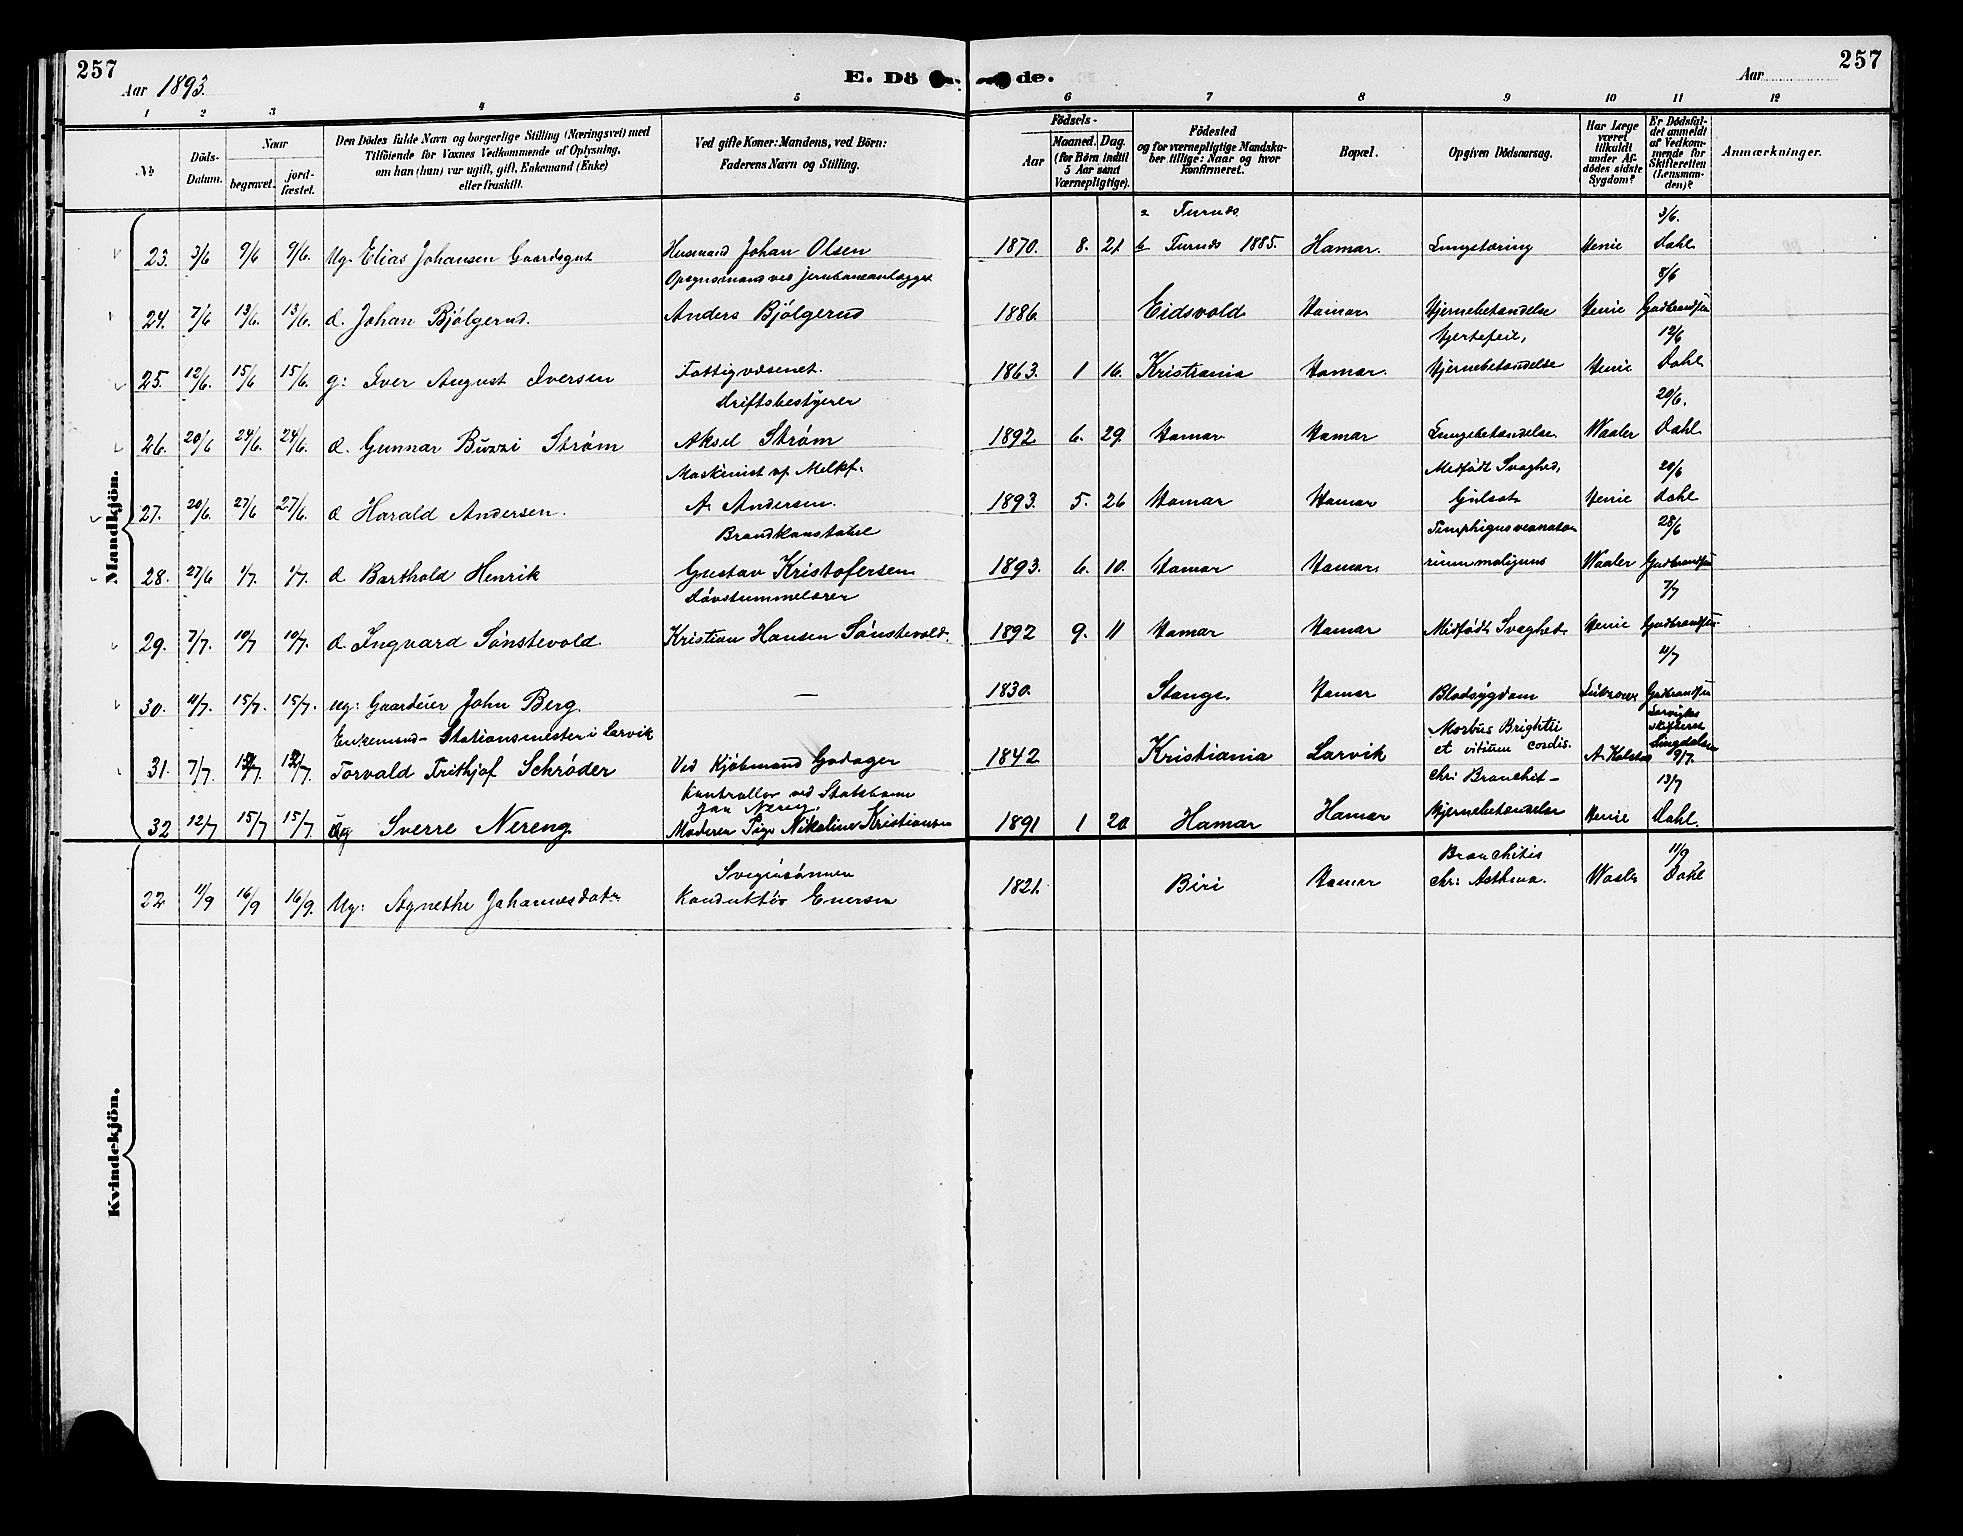 257
Aar 1893.
E. Dö de.
Aar
257
1 2 3 4 5 6 7 8 9 10 11 12
No
Döds-Datum.
Naar
begravet.
jord-fæstet.
Den Dödes fulde Navn og borgerlige Stilling (Næringsvei) med
Tilföiende for Voxnes Vedkommende af Oplysning,
om han (hun) var ugift, gift, Enkemand (Enke)
eller fraskilt.
Ved gifte Koner: Mandens, ved Börn:
Faderens Navn og Stilling.
Födsels-
Aar
Maaned. Dag.
(for Börn indtil
5 Aar samt
Værnepligtige).
Födested
og for værnepligtige Mandska-
ber tillige: Naar og hvor
konfirmeret.
Bopæl.
Opgiven Dödsaarsag.
Har Læge
været
tilkaldt
under Af-
dödes sidste
Sygdom?
Er Dödsfal-
det anmeldt
af Vedkom-
mende for
Skifteretten
(Lensman-
den)?
Anmærkninger.
Mandkjön.
a Furnes 3/6.
23. 3/6 9/6 9/6. Ug. Elias Johansen Gaardsgut Husmand Johan Olsen 1870. 8. 21 b Furnes 1885. Hamar. Lungetæring Henie Dahl
Opsynsmand ved Jernbaneanlægget 8/6
24. 7/6 13/6. 13/6. d. Johan Bjölgerud. Anders Bjölgerud 1886 Eidsvold Hamar Hjernebetændelse Henie Gudbrandsen
Hjertefeil, 12/6
25. 12/6. 15/6 15/6. g: Iver August Iversen Fattigvæsenet. 1863. 1 16. Kristiania Hamar. Hjernebetændelse Henie Dahl
Driftsbestyrer 20/6.
26. 20/6 24/6. 24/6. d. Gunnar Buzzi Strøm Aksel Strøm 1892 6. 29. Hamar Hamar Lungebetændelse Waaler Dahl
Maskinist vf Melkf. Medfødt Svaghed, 20/6
27. 20/6. 27/6 27/6. d Harald Andersen. A. Andersen. 1893. 5. 26 Hamar Hamar Gulsot Henie Dahl
Brandkonstabel 28/6
28. 27/6 1/7. 1/7. d Barthold Henrik Gustav Kristofersen 1893. 6. 10. Hamar Hamar malignus Waaler Gudbrandsen
Døvstummelærer 7/7
29. 7/7. 10/7 10/7. d. Ingvard Sønstevold Kristian Hansen Sønstevold. 1892 9. 11 Hamar Hamar Medfødt Svaghed Henie Gudbrandsen
11/7
30. 11/7. 15/7. 15/7. ug: Gaardeier John Berg. — 1830. Stange. Hamar Blodsygdom Gudbrandsen
Enkemand - Stationsmester i Larvik Morbus Brightii Larviks
et vitium cordis.
31. 7/7. 13/7 13/7. Torvald Frithjof Schrøder Ved Kjøbmand Godager 1842 Kristiania Larvik 9/7.
Kontrollør ved Statsbane chr: Bronchit- 13/7
32 12/7 15/7 15/7. Ug Sverre Nereng Moderen Pige Nikoline Kristiansen 1891 1 20 Hamar Hamar Hjernebetændelse Henie Dahl.
Kvindekjön.
Svigersønnen Bronchitis 11/9
22 11/9 16/9 16/9. Ug: Agnethe Johannesdatr Konduktör Enersen 1821. Biri Hamar chr: Asthma. Waaler Dahl